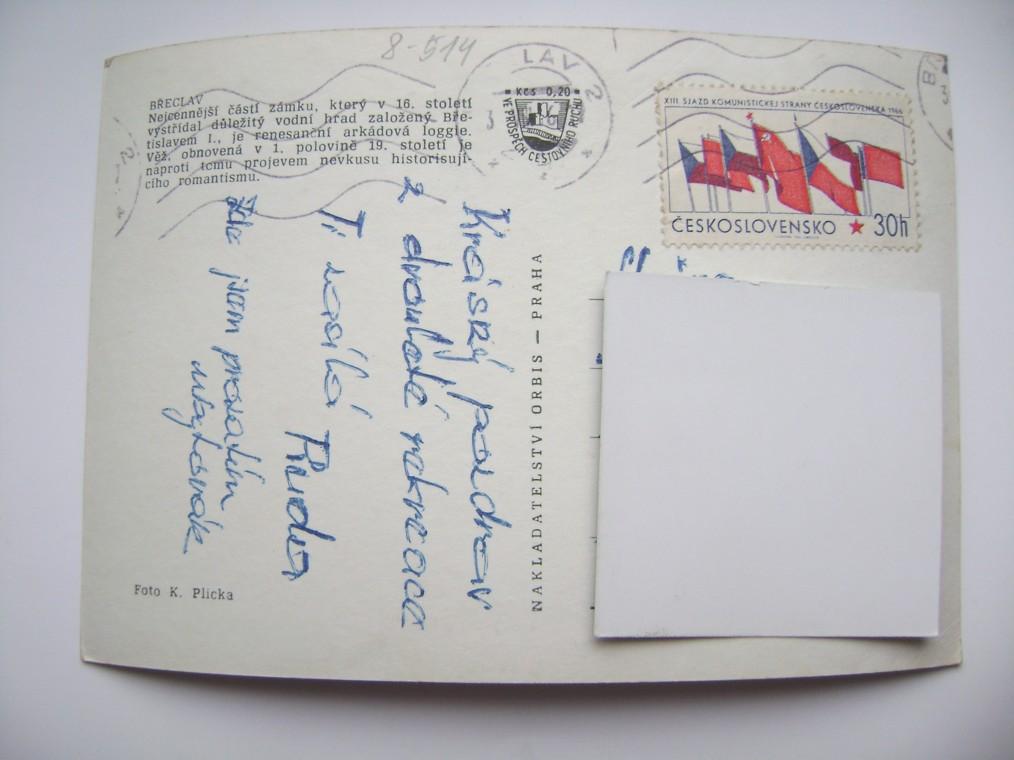 8-514
BŘECLAV
Nejcennější částí zámku, který v 16. století
vystřídal důležitý vodní hrad založený Bře-
tislavem I., je renesanční arkádová loggie.
Věž, obnovená v 1. polovině 19. století je
naproti tomu projevem nevkusu historisují-
cího romantismu.
LAV
2
Kčs 0,20
VE PROSPĚCH CESTOVNÍHO RUCHU
XIII. SJAZD KOMUNISTICKEJ STRANY ČESKOSLOVENSKA 1966
ČESKOSLOVENSKO 30h
Krásný pozdrav
z
Ti posílá
Ruda
Zde jsem prozatím
NAKLADATELSTVÍ ORBIS — PRAHA
Foto K. Plicka